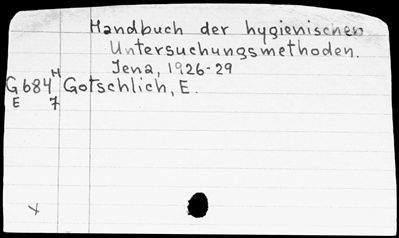 Handbuch der hygienischen
Untersuchungsmethoden.
Jena, 1926-29
H
G684 Gotschlich, E.
E 7
x